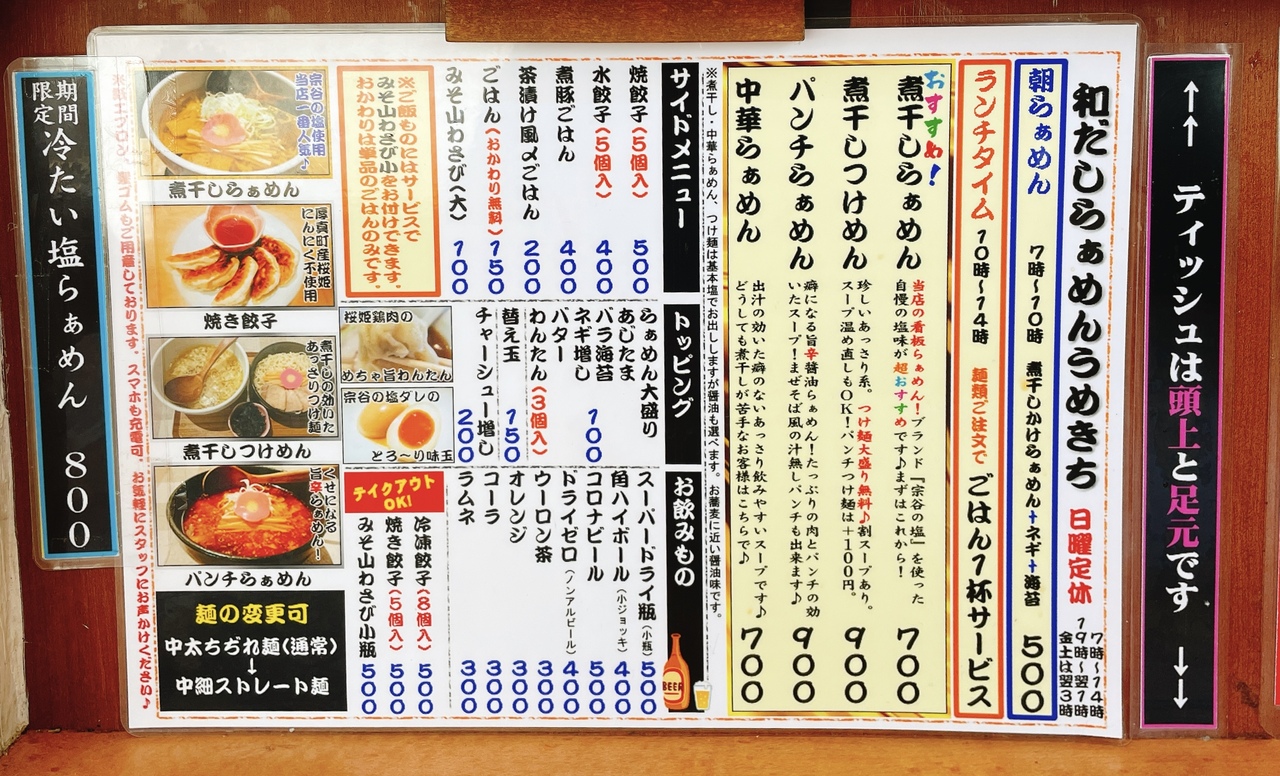 ↑↑ ティッシュは頭上と足元です ↓↓
和だしらぁめんうめきち
日曜定休
7時〜14時
19時〜翌1時
金土は翌3時
朝らぁめん 7時〜10時 煮干しかけらぁめん+ネギ+海苔 500
ランチタイム 10時〜14時 麺類ご注文で ごはん1杯サービス
おすすめ!
煮干しらぁめん
当店の看板らぁめん!ブランド『宗谷の塩』を使った
自慢の塩味が超おすすめです♪まずはこれから!
700
煮干しつけめん
珍しいあっさり系。つけ麺大盛り無料♪割スープあり。
スープ温め直しもOK!パンチつけ麺は+100円。
900
パンチらぁめん
癖になる旨辛醤油らぁめん!たっぷりの肉とパンチの効
いたスープ!まぜそば風の汁無しパンチも出来ます♪
900
中華らぁめん
出汁の効いた癖のないあっさり飲みやすいスープです♪
どうしても煮干しが苦手なお客様はこちらで♪
700
※煮干し・中華らぁめん、つけ麺は基本塩でお出ししますが醤油も選べます。お蕎麦に近い醤油味です。
サイドメニュー
焼餃子(5個入) 500
水餃子(5個入) 400
煮豚ごはん 400
茶漬け風〆ごはん 200
ごはん(おかわり無料) 150
みそ山わさび(大) 100
※ご飯ものにはサービスで
みそ山わさび小をお付けできます。
おかわりは単品のごはんのみです。
トッピング
らぁめん大盛り
あじたま
バラ海苔
ネギ増し
バター
100
わんたん(3個入)
替え玉
150
チャーシュー増し 200
桜姫鶏肉の
めちゃ旨わんたん
宗谷の塩ダレの
とろ〜り味玉
お飲みもの
スーパードライ瓶(小瓶) 500
角ハイボール(小ジョッキ) 400
コロナビール 500
ドライゼロ(ノンアルビール) 400
ウーロン茶 300
オレンジ 300
コーラ 300
ラムネ 300
BEER
テイクアウト
OK!
冷凍餃子(8個入) 500
焼き餃子(5個入) 500
みそ山わさび小瓶 500
宗谷の塩使用
当店一番人気♪
煮干しらぁめん
厚真町産桜姫
にんにく不使用
焼き餃子
煮干しの効いた
あっさりつけ麺
煮干しつけめん
くせになる
旨辛らぁめん!
パンチらぁめん
麺の変更可
中太ちぢれ麺(通常)
↓
中細ストレート麺
※紙エプロン、髪ゴムもご用意しております。スマホも充電可。お気軽にスタッフにお声かけください♪
期間
限定
冷たい塩らぁめん 800